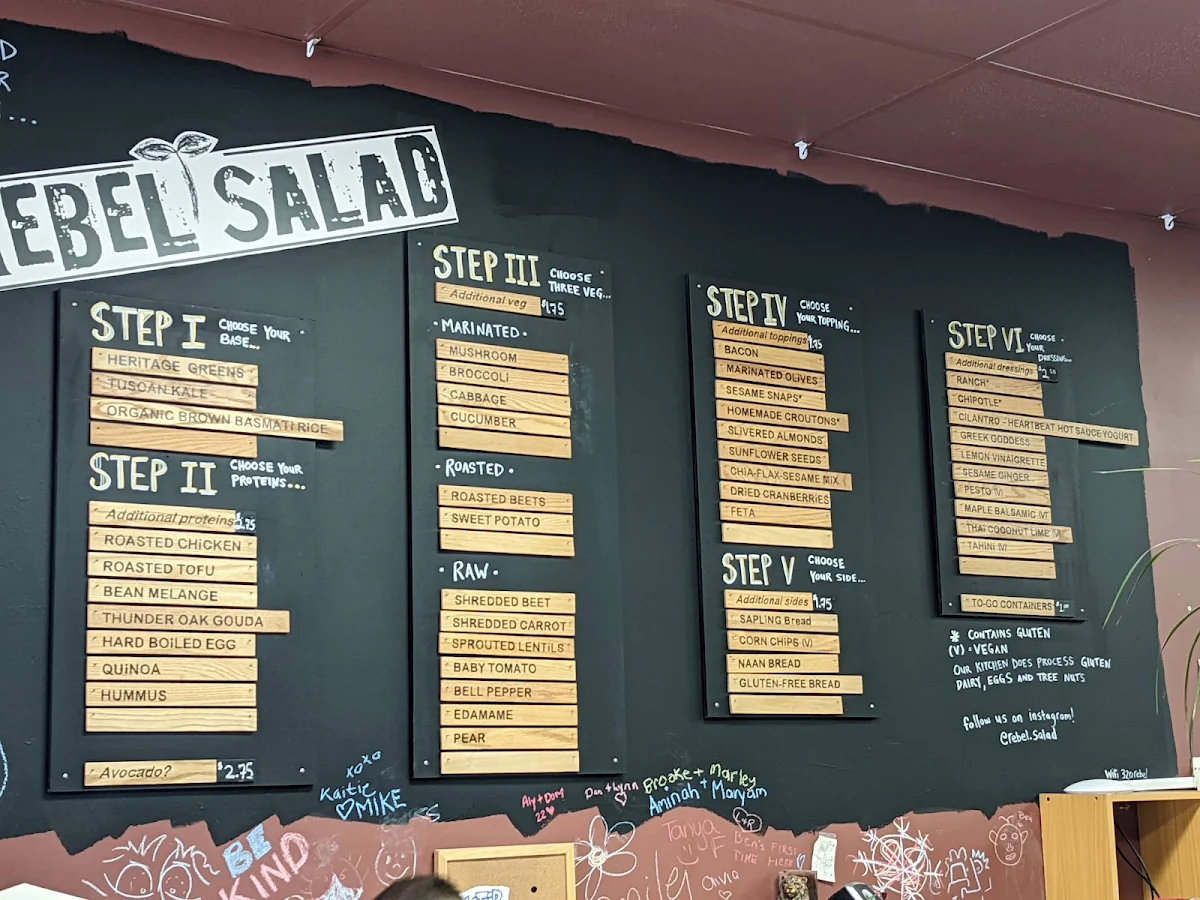 EBEL SALAD
STEP I CHOOSE YOUR
BASE...
HERITAGE GREENS
TUSCAN KALE
ORGANIC BROWN BASMATI RICE
STEP II CHOOSE YOUR
PROTEINS...
Additional proteins
ROASTED CHICKEN
ROASTED TOFU
BEAN MELANGE
THUNDER OAK GOUDA
HARD BOILED EGG
QUINOA
HUMMUS
AVOCADO? $2.75
STEP III CHOOSE
THREE VEG...
Additional veg $1.75
• MARINATED •
MUSHROOM
BROCCOLI
CABBAGE
CUCUMBER
• ROASTED •
ROASTED BEETS
SWEET POTATO
• RAW •
SHREDDED BEET
SHREDDED CARROT
SPROUTED LENTILS
BABY TOMATO
BELL PEPPER
EDAMAME
PEAR
STEP IV CHOOSE
YOUR TOPPING...
Additional toppings 1.75
BACON
MARINATED OLIVES
SESAME SNAPS*
HOMEMADE CROUTONS*
SLIVERED ALMONDS
SUNFLOWER SEEDS
CHIA-FLAX-SESAME MIX
DRIED CRANBERRIES
FETA
STEP V CHOOSE
YOUR SIDE...
Additional sides $1.75
SAPLING Bread
CORN CHIPS (V)
NAAN BREAD
GLUTEN-FREE BREAD
STEP VI CHOOSE
YOUR
DRESSING...
Additional dressings $2.00
RANCH*
CHIPOTLE*
CILANTRO - HEARTBEAT HOT SAUCE YOGURT
GREEK GODDESS
LEMON VINAIGRETTE
SESAME GINGER
PESTO (V)
MAPLE BALSAMIC (V)
THAI COCONUT LIME (V)
TAHINI (V)
TO-GO CONTAINERS $1.00
* CONTAINS GLUTEN
(V) = VEGAN
OUR KITCHEN DOES PROCESS GLUTEN
DAIRY, EGGS AND TREE NUTS
follow us on instagram!
@rebel.Salad
Wifi 320rebel
xoxo
Kaitie
MIKE
Aly + Dom
22
Dan + Lynn
Brooke + Marley
Aminah + Maryam
BE
KIND
Tanya
BEN'S FIRST
TIME HERE
Olivia